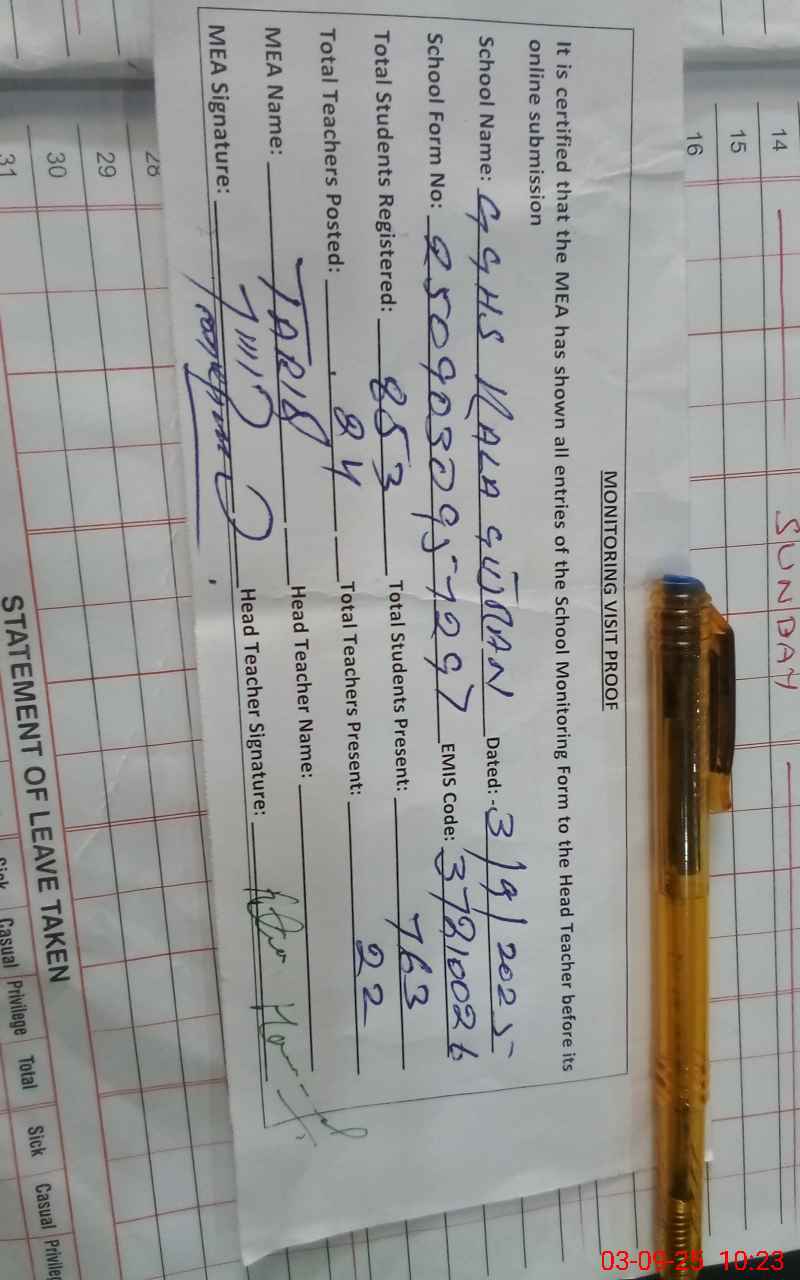 14
15
16
SUNDAY
MONITORING VISIT PROOF
It is certified that the MEA has shown all entries of the School Monitoring Form to the Head Teacher before its
online submission
School Name: GGHS KALA GUJRAN Dated: - 3/9/2025
School Form No: 2509030957297 EMIS Code: 37210026
Total Students Registered: 853 Total Students Present: 763
Total Teachers Posted: 24 Total Teachers Present: 22
MEA Name: TARIQ Head Teacher Name:
MEA Signature: Head Teacher Signature:
28
29
30
31
STATEMENT OF LEAVE TAKEN
Sick Casual Privilege Total Sick Casual
03-09-25 10:23